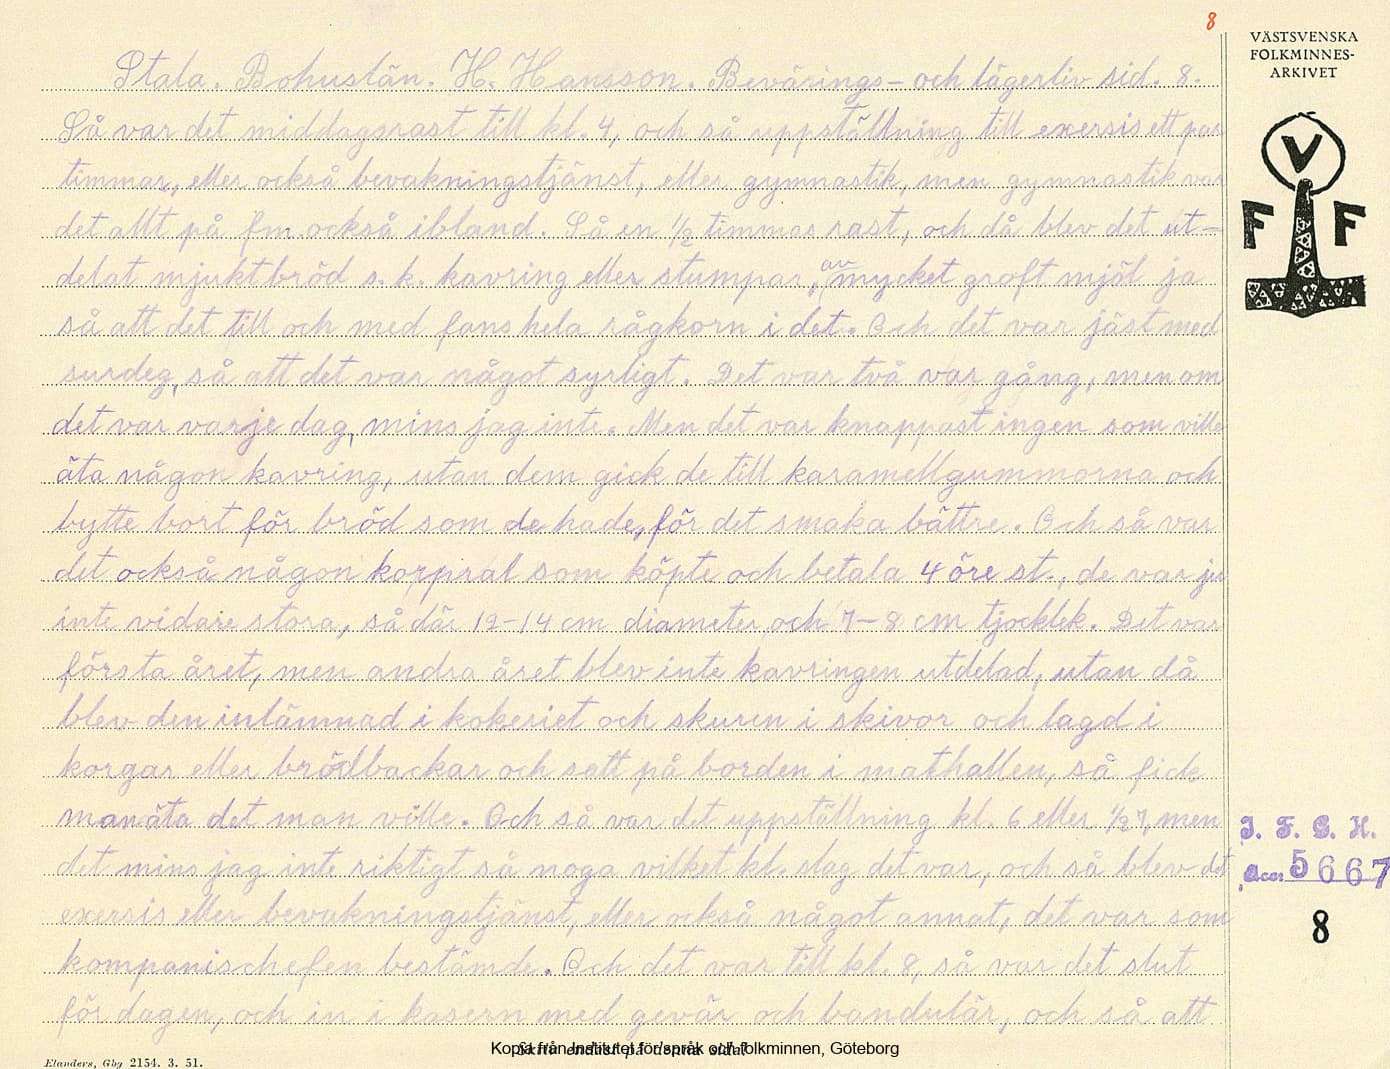 8
VÄSTSVENSKA
FOLKMINNES-
ARKIVET
V
F F
Stala. Bohuslän. H. Hansson. Bevärings- och lägerliv sid. 8.
Så var det middagsrast till kl. 4, och så uppställning till exersis ett par
timmar, eller också bevakningstjänst, eller gymnastik, men gymnastik var
det allt på fm. också ibland. Så en 1/2 timmas rast, och då blev det ut-
delat mjuktbröd s.k. kavring eller stumpar, av mycket groft mjöl ja
så att det till och med fans hela rågkorn i det. Och det var jäst med
surdeg, så att det var något syrligt. Det var två var gång, men om
det var varje dag, mins jag inte. Men det var knappast ingen som ville
äta någon kavring, utan dem gick de till karamellgummorna och
bytte bort för bröd som de hade, för det smaka bättre. Och så var
det också någon korpral som köpte och betala 4 öre st., de var ju
inte vidare stora, så där 12-14 cm diameter och 7-8 cm tjocklek. Det var
första året, men andra året blev inte kavringen utdelad, utan då
blev den inlämnad i kokeriet och skuren i skivor och lagd i
korgar eller brödbackar och satt på borden i mathallen, så fick
man äta det man ville. Och så var det uppställning kl. 6 eller 1/2 7, men
det mins jag inte riktigt så noga vilket kl. slag det var, och så blev det
exersis eller bevakningstjänst, eller också något annat, det var som
kompanischefen bestämde. Och det var till kl. 8, så var det slut
för dagen, och in i kasern med gevär och bandulär, och så att
I. F. G. H.
Acc: 5667
8
Skriv endast på denna sida!
Kopia från Institutet för språk och folkminnen, Göteborg
Elanders, Gbg 2154. 3. 51.